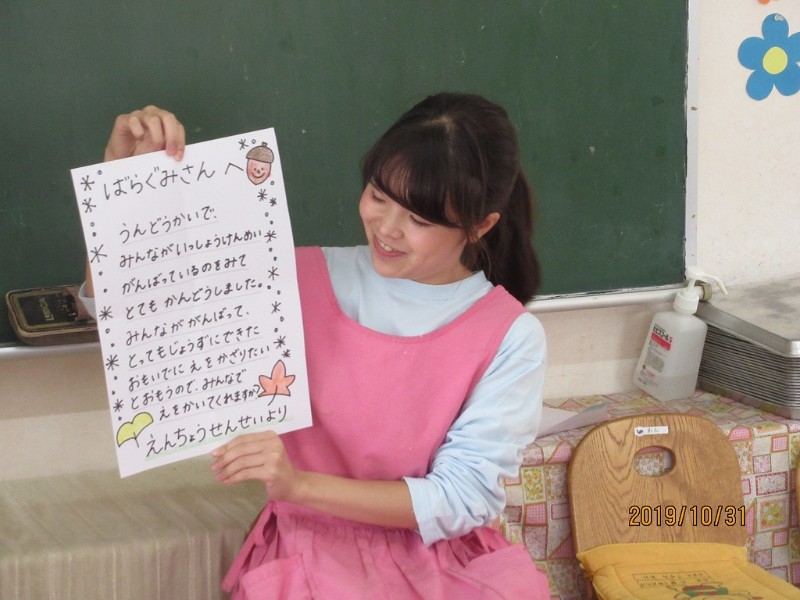 ばらぐみさん へ
うんどうかいで、
みんながいっしょうけんめい
がんばっているのをみて
とても かんどうしました。
みんなががんばって、
とってもじょうずにできた
おもいでに えをかざりたい
とおもうので、みんなで
えをかいてくれますか?
えんちょうせんせいより
2019/10/31